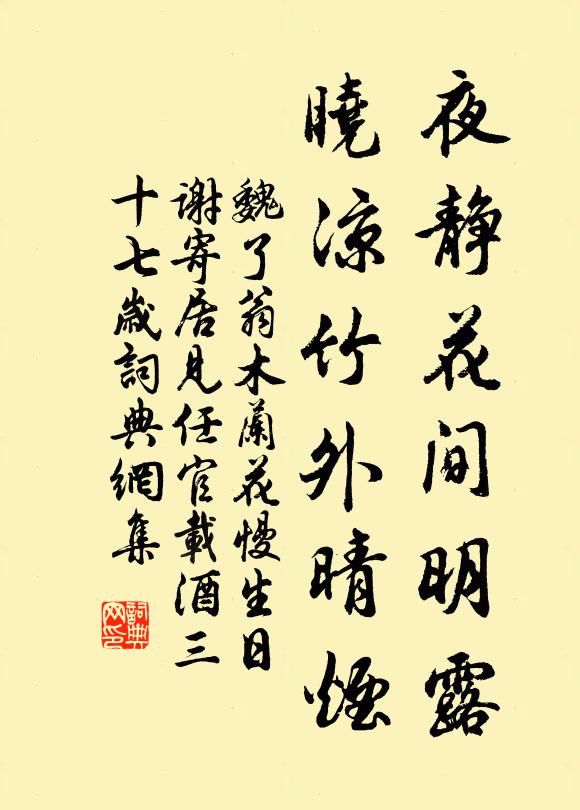 夜静花间明露
曉凉竹外晴煙
魏了翁木蘭花慢生日
谢寄居見任官載酒三
十七歲詞典網集
詞典
网印